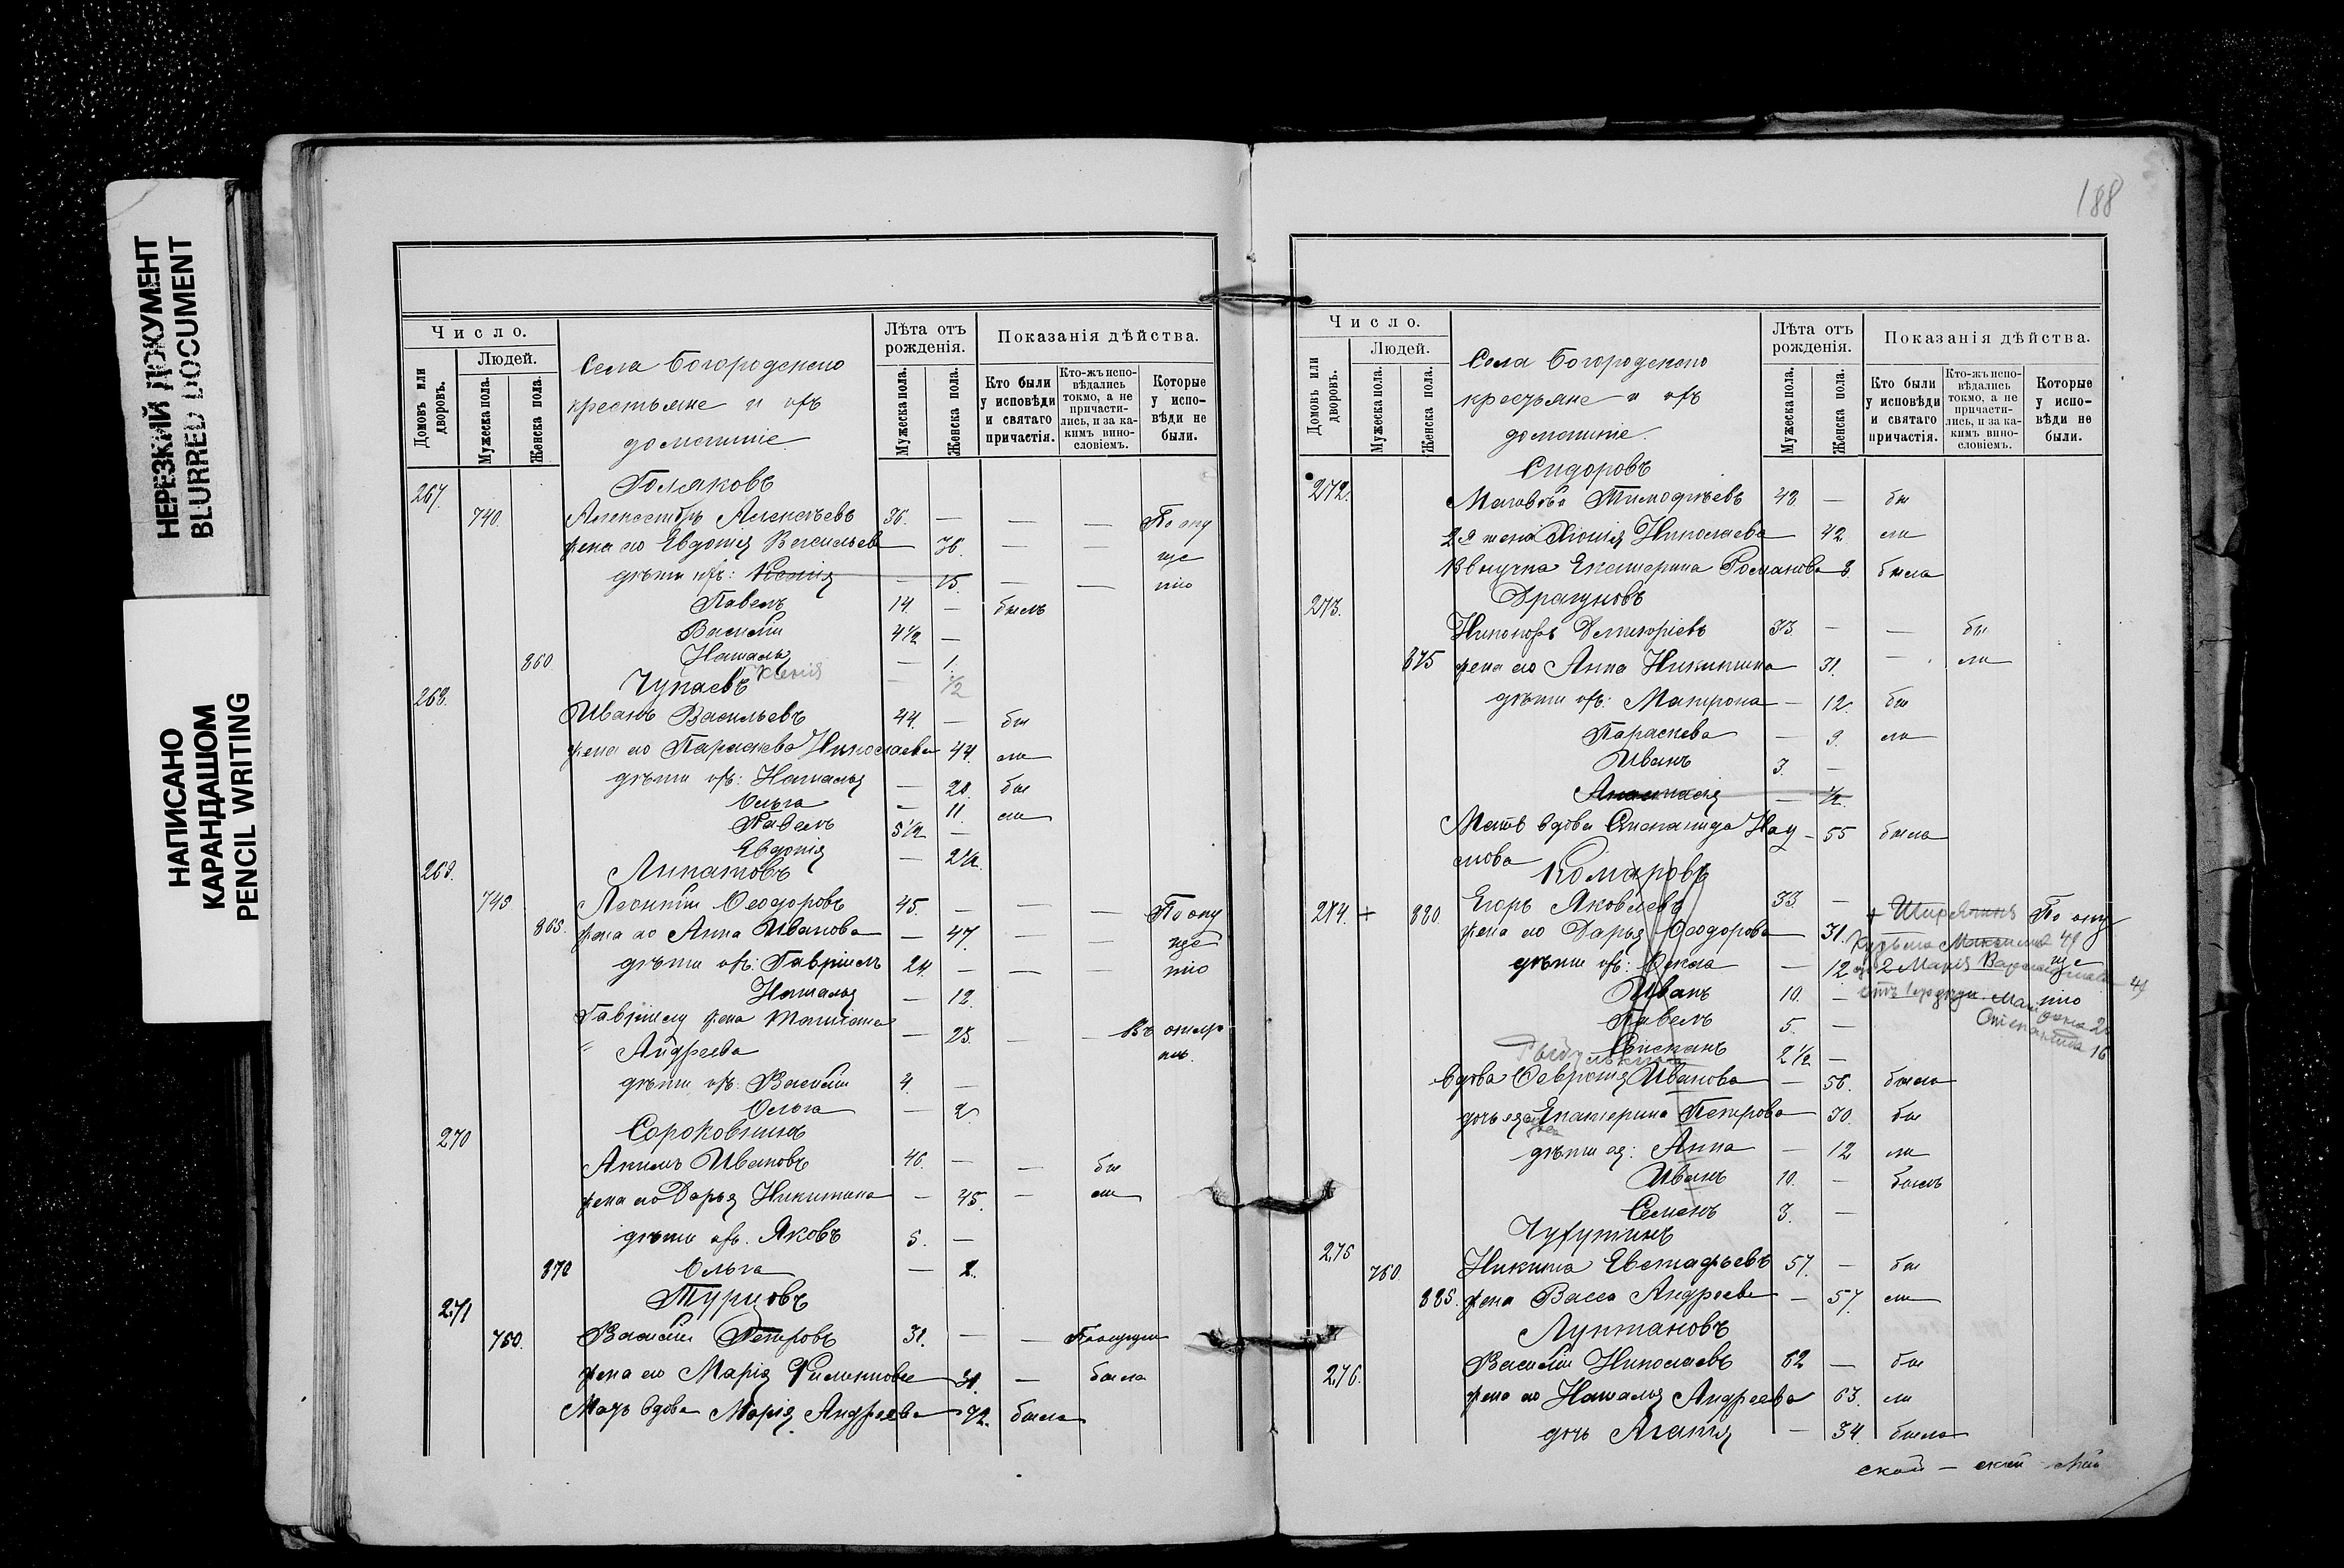 НЕРЕЗКИЙ ДОКУМЕНТ
BLURRED DOCUMENT
НАПИСАНО
КАРАНДАШОМ
PENCIL WRITING
Число.
Людей.
Домовъ или дворовъ.
Мужеска пола.
Женска пола.
Села Богородскаго
крестьяне и ихъ
домашніе
Лѣта отъ рожденія.
Мужеска пола.
Женска пола.
Показанія дѣйства.
Кто были у исповѣди и святаго причастія.
Кто-жъ исповѣдались токмо, а не причастились, и за какимъ винословіемъ.
Которые у исповѣди не были.
267. Поляковъ
740. Алексѣевъ 36. — — — По опу
жена его Евдокія Васильева 36. — — ще
дѣти ихъ: Ксенія — 15. — — нію
Павелъ 14. — былъ
Василій 4½ —
860 Наталья — 1.
Ксенія — ½
268. Чупаевъ
Иванъ Васильевъ 44. — бы
жена его Параскева Николаева 44. ли
дѣти ихъ: Наталья — 20. бы
Ольга — 11. ли
Павелъ 5½ —
Евдокія — 2½
269. Липатовъ
745 Леонтій Ѳеодоровъ 45. — — — По опу
865. жена его Анна Иванова — 47. — — ще
дѣти ихъ: Гавріилъ 24. — — нію
Наталья — 12.
Гавріила жена Татіана
Андреева — 25. — — Въ отлу
дѣти ихъ: Василій 4. —
Ольга — 2
270 Сороковнинъ
Акимъ Ивановъ 46. — — бы
жена его Дарья Никитина — 45. — ли
дѣти ихъ. Яковъ 5. —
870 Ольга — 2.
271 Турцовъ
750. Василій Петровъ 31. — —
жена его Марія Филиппова 31. — была
Мать вдова Марія Андреева 72. была
188
Число.
Людей.
Домовъ или дворовъ.
Мужеска пола.
Женска пола.
Села Богородскаго
крестьяне и ихъ
домашніе.
Лѣта отъ рожденія.
Мужеска пола.
Женска пола.
Показанія дѣйства.
Кто были у исповѣди и святаго причастія.
Кто-жъ исповѣдались токмо, а не причастились, и за какимъ винословіемъ.
Которые у исповѣди не были.
Сидоровъ
272. Тимоѳѣевъ 48. — бы
2я жена Хіонія Николаева 42 ли
Внучка Екатерина Романова 8. была
273. Драгуновъ
33. — — бы
875 жена его Анна Никитина 31. — ли
дѣти ихъ: Матрона — 12. бы
Параскева — 9. ли
Иванъ 3. —
Анастасія — ½
Мать вдова Степанида Нау — 55 была
мова
Комаровъ
274. + 880 Егоръ Яковлевъ 33. — + По опу
жена его Дарья Ѳеодорова 31. Кузьма 41
дѣти ихъ: Ѳекла — 12 ще
Марія 41
Иванъ 10. — нію
Павелъ 5. —
Степанида 16
Степанъ 2½ —
вдова Ѳевронія Иванова — 56. была
дочь ея Екатерина Петрова 30. бы
дѣти ея: Анна — 12 ли
Иванъ 10. — былъ
Семенъ 3. —
275 Чузутинъ
760. Никита Евстафьевъ 57. — бы
885. жена Васса Андреева — 57. ли
Луптановъ
276. Василій Николаевъ 62 — бы
жена его Наталья Андреева 63. ли
дочь Агапія — 34. была